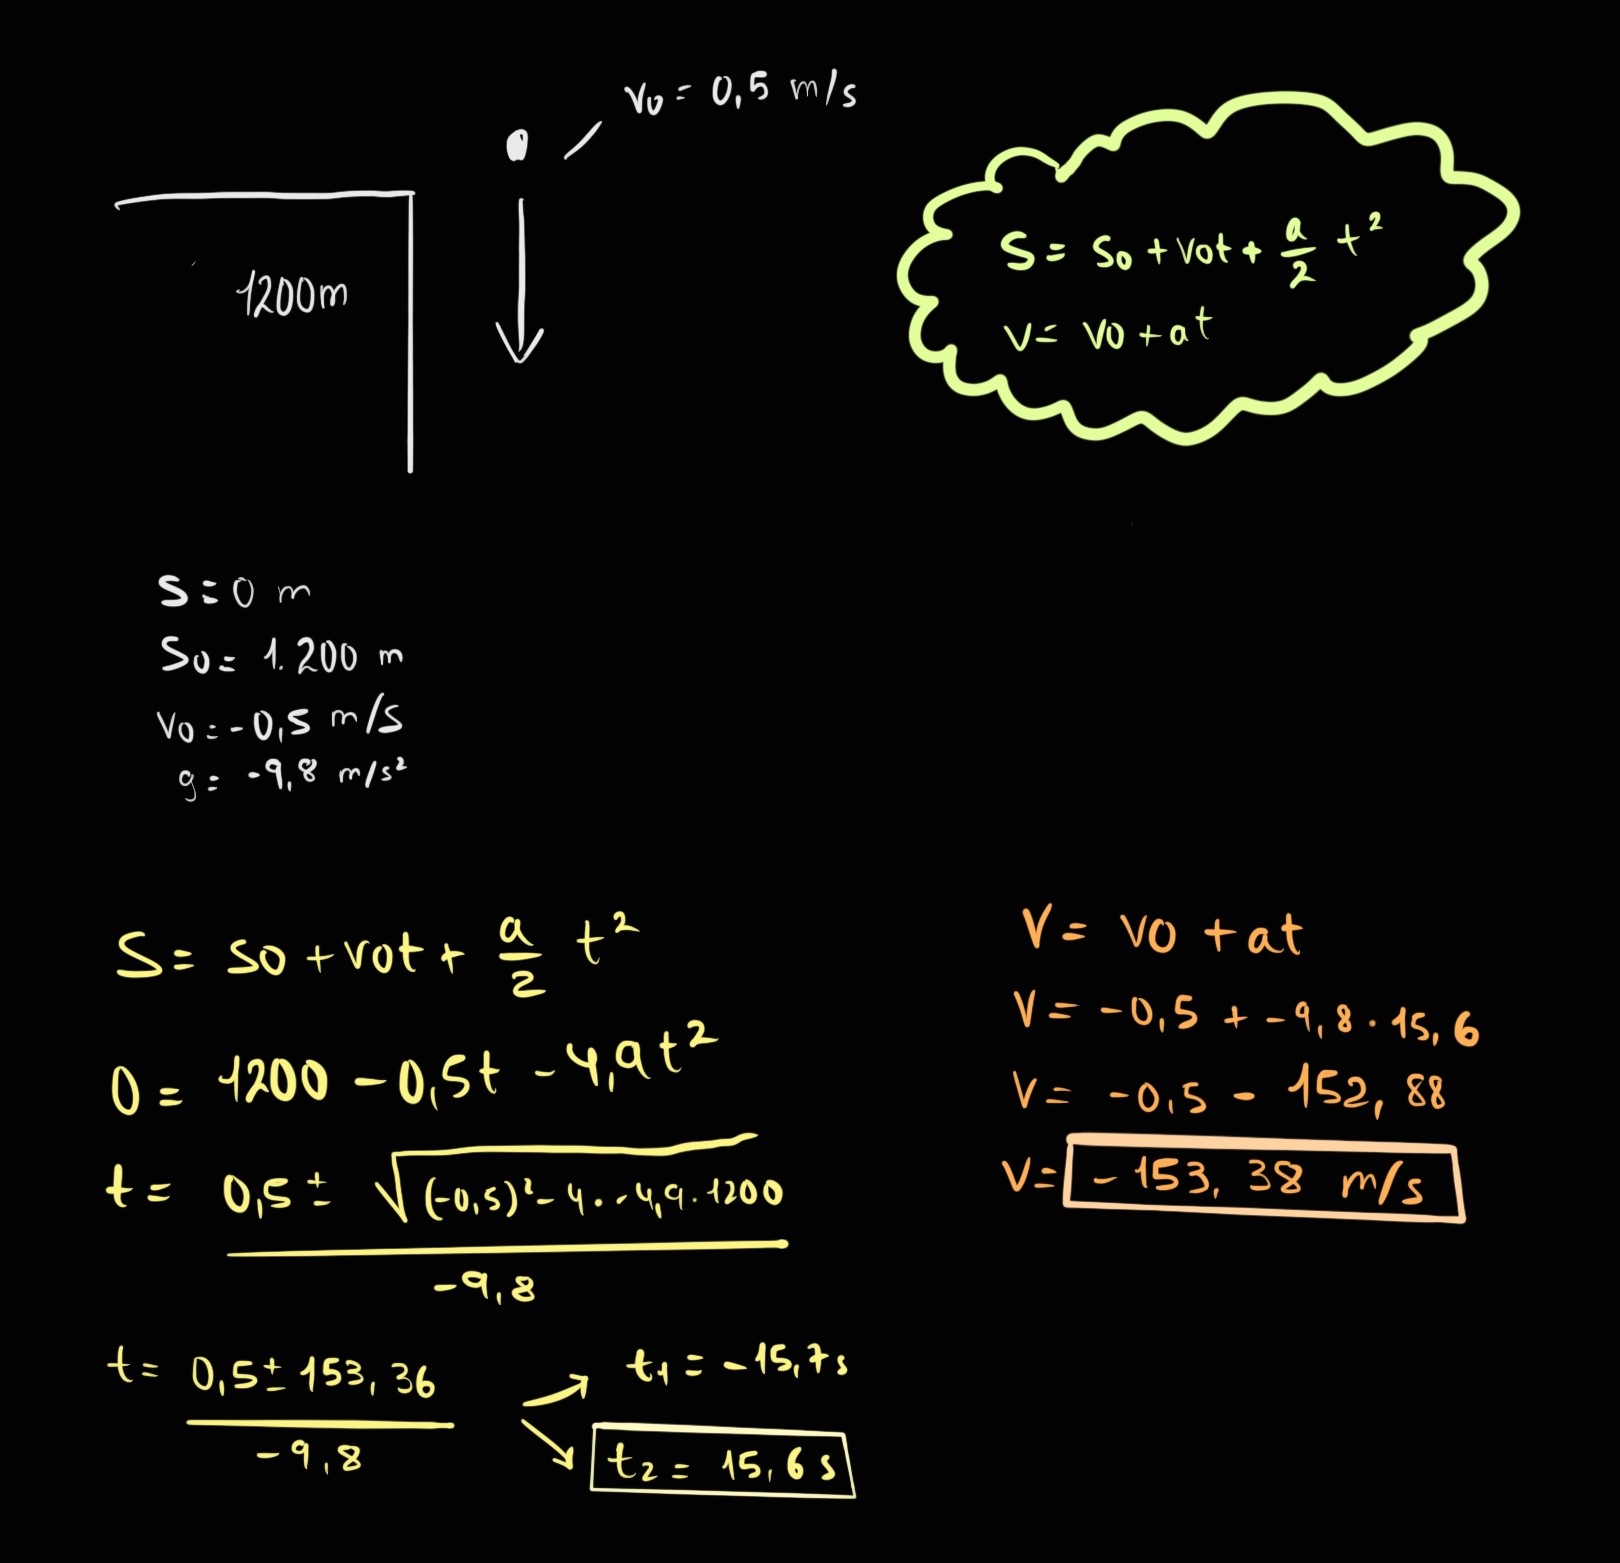 v0 = 0,5 m/s
1200m
S = S0 + v0t + a/2 t²
v = v0 + at
S = 0 m
S0 = 1.200 m
v0 = -0,5 m/s
g = -9,8 m/s²
S = S0 + v0t + a/2 t²
0 = 1200 - 0,5t - 4,9t²
t = 0,5 ± √(-0,5)² - 4 . -4,9 . 1200
-9,8
t = 0,5 ± 153,36
-9,8
t1 = -15,7s
t2 = 15,6 s
V = V0 + at
V = -0,5 + -9,8 . 15,6
V = -0,5 - 152,88
V = -153,38 m/s